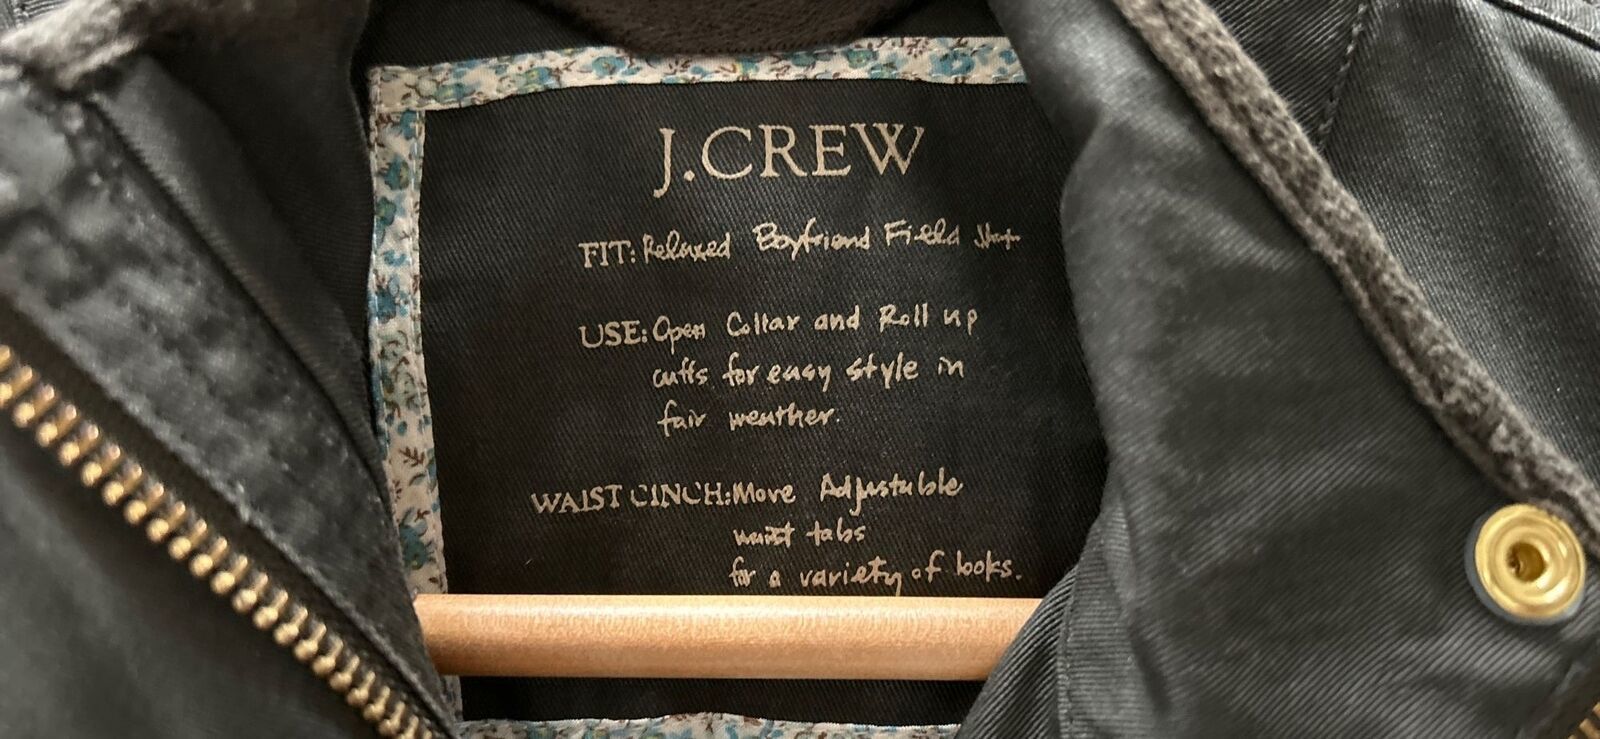 J.CREW
FIT: Relaxed Boyfriend Field
USE: Open Collar and Roll up
cuffs for easy style in
fair weather.
WAIST CINCH: Move Adjustable
waist tabs
for a variety of looks.